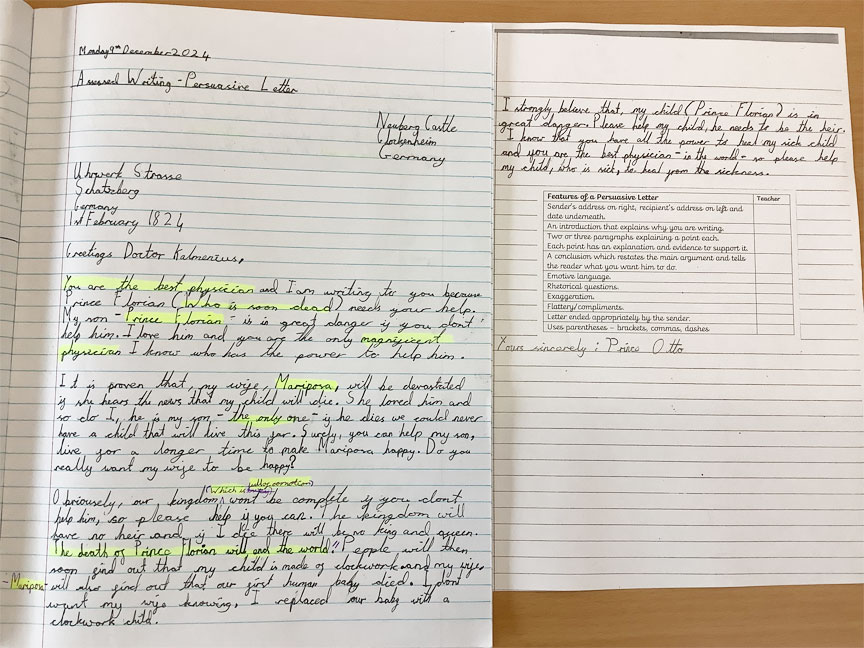 Monday 9th December 2024
Assessed Writing - Persuasive Letter
Neuberg Castle
Glockenheim
Germany
Uhrwerk Strasse
Schatzberg
Germany
1st February 1824
Greetings Doctor Kalmenius,
You are the best physician and I am writing to you because
Prince Florian (Who is soon dead) needs your help.
My son - Prince Florian - is in great danger if you don't
help him. I love him and you are the only magnificent
physician I know who has the power to help him.
It is proven that, my wife, Mariposa, will be devastated
if she hears the news that my child will die. She loved him and
so do I, he is my son - the only one - if he dies we could never
have a child that will live this far. Surely, you can help my son,
live for a longer time to make Mariposa happy. Do you
really want my wife to be happy?
(Which is
Obviously, our kingdom won't be complete if you dont
help him, so please help if you can. The kingdom will
have no heir and if I die there will be no king and queen.
The death of Prince Florian will end the world! People will then
soon find out that my child is made of clockwork and my wife
- Mariposa - will also find out that our first human baby died. I don't
want my wife knowing, I replaced our baby with a
clockwork child.
I strongly believe that, my child (Prince Florian) is in
great danger. Please help my child, he needs to be the heir.
I know that you have all the power to heal my sick child
and you are the best physician - in the world - so please help
my child, who is sick, to heal from the sickness.
Features of a Persuasive Letter Teacher
Sender's address on right, recipient's address on left and
date underneath.
An introduction that explains why you are writing.
Two or three paragraphs explaining a point each.
Each point has an explanation and evidence to support it.
A conclusion which restates the main argument and tells
the reader what you want him to do.
Emotive language.
Rhetorical questions.
Exaggeration.
Flattery/compliments.
Letter ended appropriately by the sender.
Uses parentheses – brackets, commas, dashes
Yours sincerely; Prince Otto